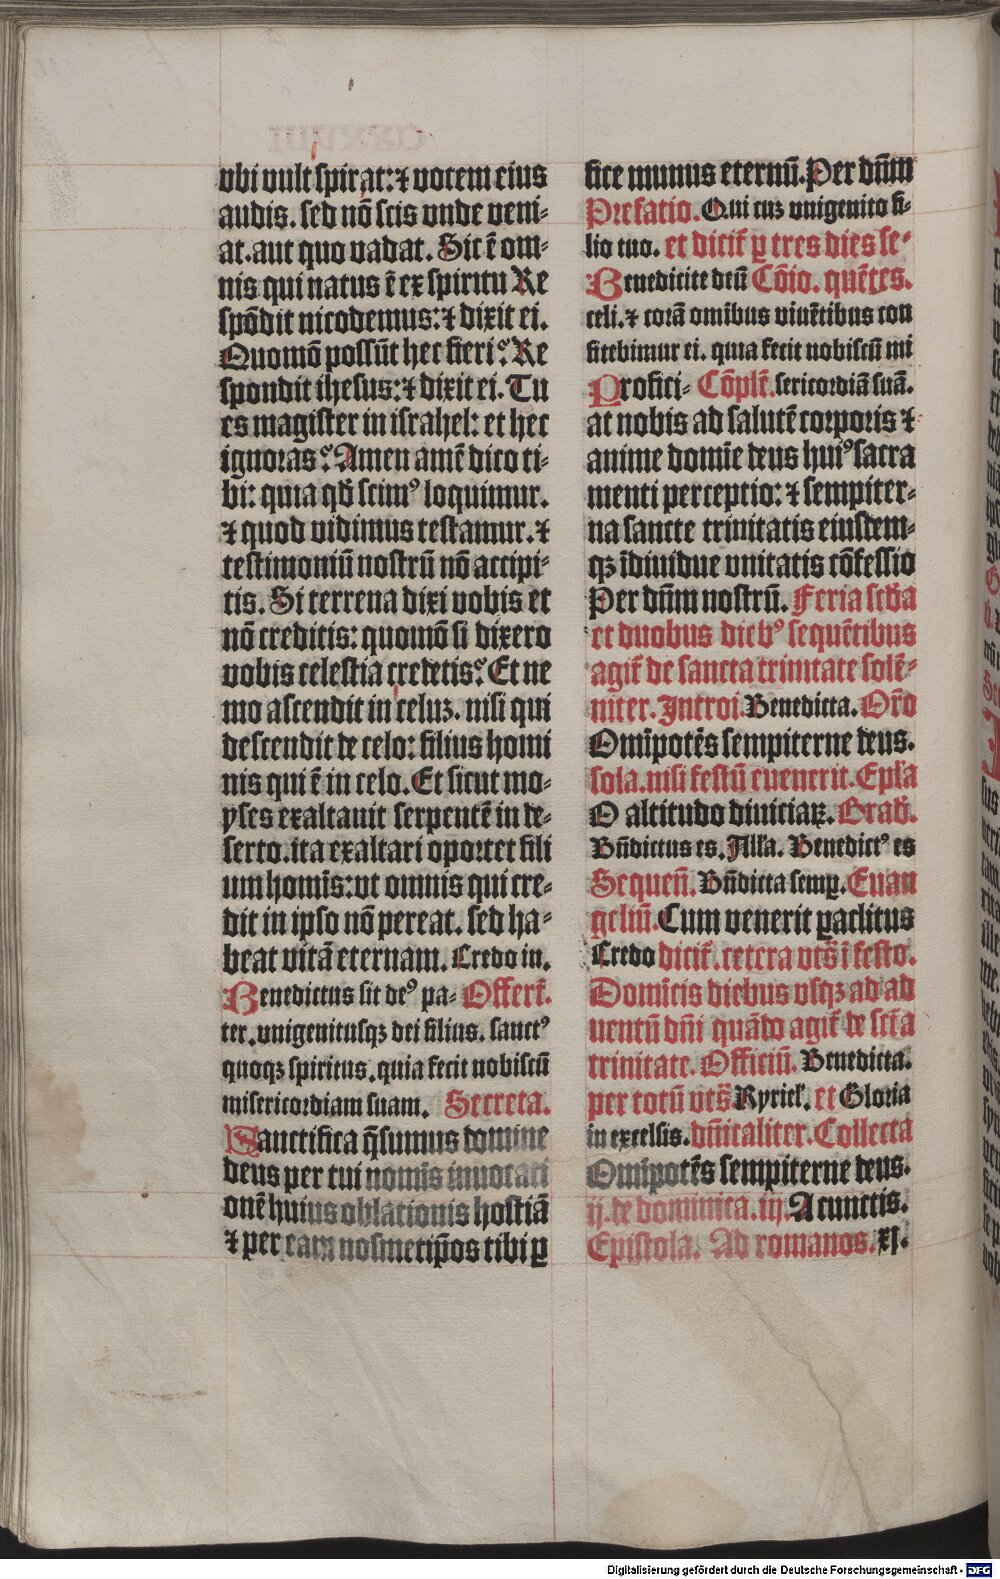 vbi vult spirat: ⁊ vocem eius
audis. sed nō scis vnde veni-
at. aut quo vadat. Sic ē om-
nis qui natus ē ex spiritu Re
spōdit nicodemus: ⁊ dixit ei.
Quomō possūt hec fieri? Re
spondit ihesus: ⁊ dixit ei. Tu
es magister in israhel: et hec
ignoras? Amen amē dico ti-
bi: quia qd̄ scimꝰ loquimur.
⁊ quod vidimus testamur. ⁊
testimoniū nostrū nō accipi-
tis. Si terrena dixi vobis et
nō creditis: quomō si dixero
vobis celestia credetis? Et ne
mo ascendit in celuꝫ. nisi qui
descendit de celo: filius homi
nis qui ē in celo. Et sicut mo-
yses exaltauit serpentē in de-
serto. ita exaltari oportet fili
um homīs: vt omnis qui cre-
dit in ipso nō pereat. sed ha-
beat vitā eternam. Credo in.
Benedictus sit deꝰ pa- Offert̄.
ter. vnigenitusqꝫ dei filius. sanctꝰ
quoqꝫ spiritus. quia fecit nobiscū
misericordiam suam. Secreta.
Sanctifica q̄sumus domine
deus per tui nomīs inuocati
onē huius oblationis hostiā
⁊ per eam nosmetip̄os tibi ꝑ
fice munus eternū. Per dn̄m
Prefatio. Qui cuꝫ vnigenito fi-
lio tuo. et dicit̄ ꝑ tres dies se-
Benedicite deū Cōio. quētes.
celi. ⁊ corā omībus viuētibus con
fitebimur ei. quia fecit nobiscū mi
Profici- Cōplē. sericordiā suā.
at nobis ad salutē corporis ⁊
anime domīe deus huiꝰ sacra
menti perceptio: ⁊ sempiter-
na sancte trinitatis eiusdem-
qꝫ īdiuidue vnitatis cōfessio
Per dn̄m nostrū. Feria scd̄a
et duobus diebꝰ sequētibus
agit̄ de sancta trinitate solē-
niter. Introi. Benedicta. Orō
Omīpotēs sempiterne deus.
sola. nisi festū euenerit. Epl̄a
O altitudo diuiciaꝝ. Grad̄.
Bn̄dictus es. All̄a. Benedictꝰ es
Sequen̄. Bn̄dicta semꝑ. Euan
geliū. Cum venerit ꝑaclitus
Credo dicit̄. cetera vts̄ ī festo.
Domīcis diebus vsqꝫ ad ad
uentū dn̄i quādo agit̄ de sc̄ta
trinitate. Officiū. Benedicta.
per totū vts̄. Kyriel̄. et Gloria
in excelsis. dn̄icaliter. Collecta
Omīpotēs sempiterne deus.
ij. de dominica. iij. A cunctis.
Epistola. Ad romanos. xj.
Digitalisierung gefördert durch die Deutsche Forschungsgemeinschaft - DFG